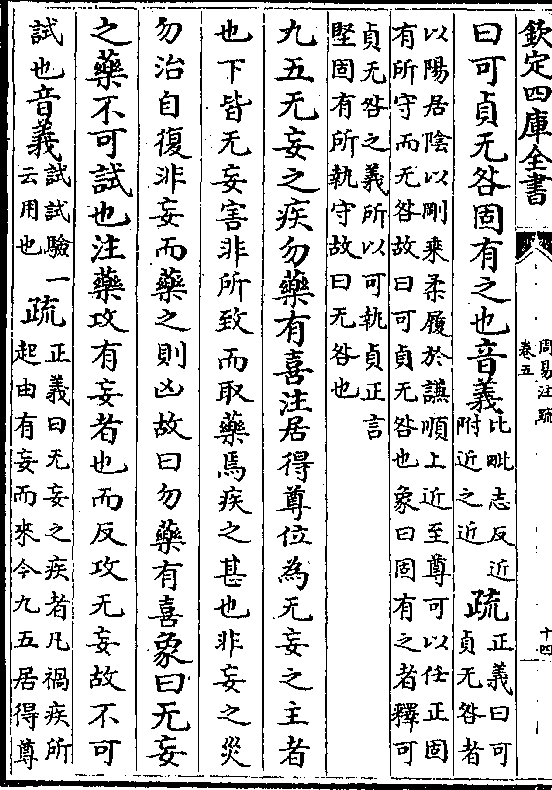 欽定四庫全書
周易注疏
卷五
十四
曰可貞无咎固有之也音義比毗志反近
附近之近疏正義曰可
貞无咎者
以陽居陰以剛乗柔履於謙順上近至尊可以任正固
有所守而无咎故曰可貞无咎也象曰固有之者釋可
貞无咎之義所以可執貞正言
堅固有所執守故曰无咎也
九五无妄之疾勿藥有喜注居得尊位為无妄之主者
也下皆无妄害非所致而取藥焉疾之甚也非妄之災
勿治自復非妄而藥之則凶故曰勿藥有喜象曰无妄
之藥不可試也注藥攻有妄者也而反攻无妄故不可
試也音義試試驗一
云用也疏正義曰无妄之疾者凡禍疾所
起由有妄而來今九五居得尊